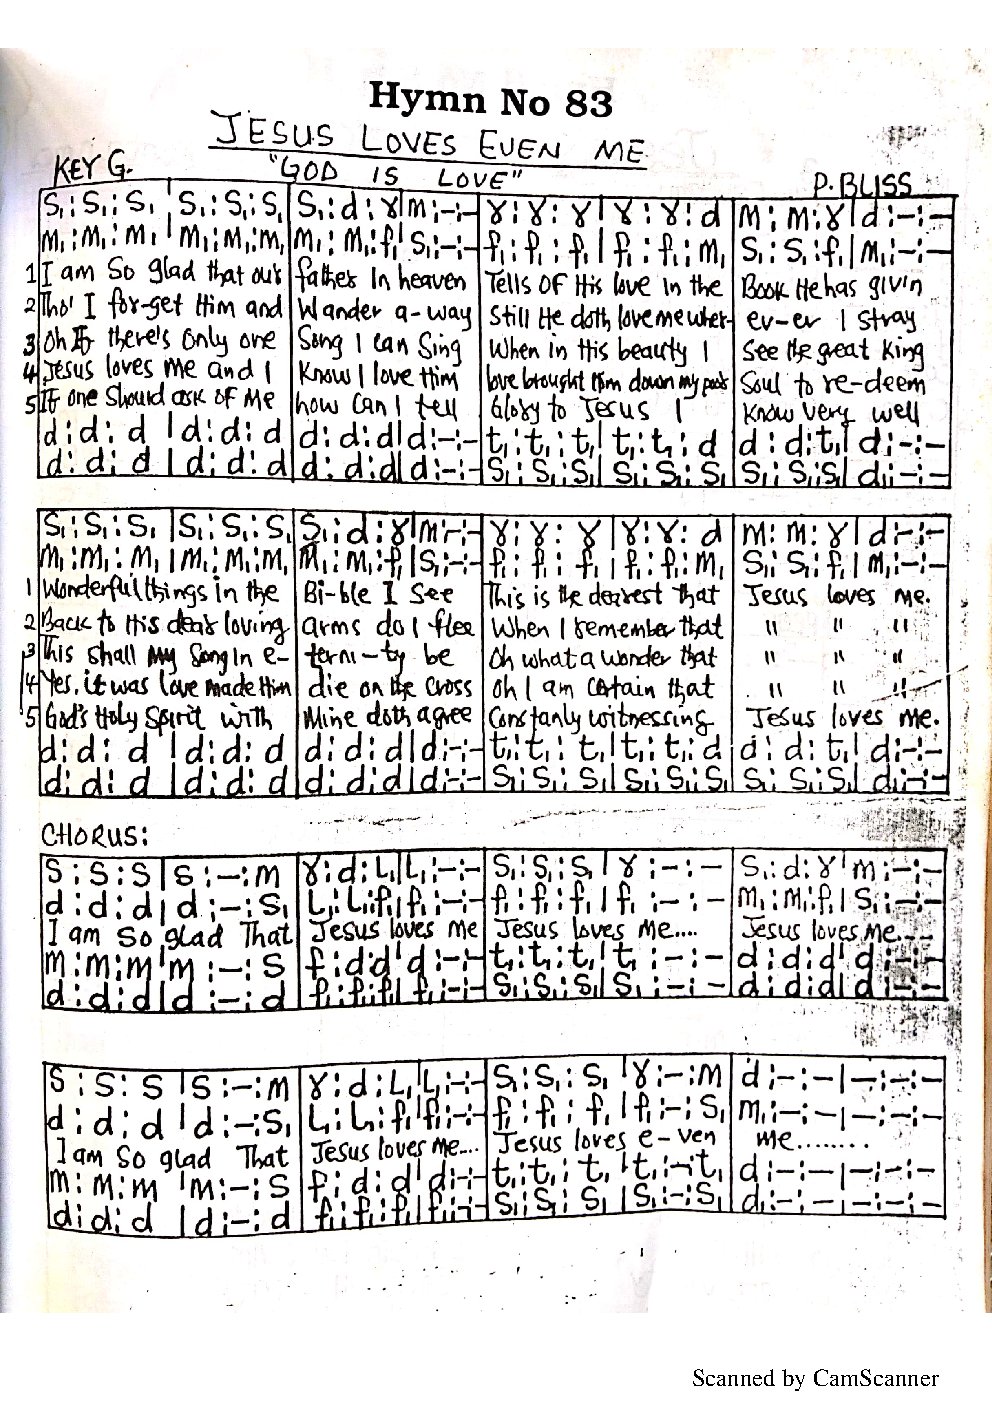 Hymn No 83
JESUS LOVES EVEN ME
KEY G. "GOD IS LOVE" P. BLISS
S₁:S₁:S₁ | S₁:S₁:S₁ | S₁:d:r | m:-:- | r:r:r | r:r:d | m:m:r | d:-:-
m₁:m₁:m₁ | m₁:m₁:m₁ | m₁:m₁:f₁ | S₁:-:- | f₁:f₁:f₁ | f₁:f₁:m₁ | S₁:S₁:f₁ | m₁:-:-
1 I am So glad that our father In heaven Tells OF His love in the Book He has giv'n
2 Tho' I for-get Him and Wander a-way Still He doth love me wher- ev-er I stray
3 Oh If there's Only one Song I can Sing When in His beauty I See the great King
4 Jesus loves me and I Know I love Him love brought Him down my poor Soul to re-deem
5 If one Should ask OF Me how Can I tell Glory to Jesus I Know very well
d:d:d | d:d:d | d:d:d | d:-:- | t₁:t₁:t₁ | t₁:t₁:d | d:d:t₁ | d:-:-
d:d:d | d:d:d | d:d:d | d:-:- | S₁:S₁:S₁ | S₁:S₁:S₁ | S₁:S₁:S₁ | d₁:-:-
S₁:S₁:S₁ | S₁:S₁:S₁ | S₁:d:r | m:-:- | r:r:r | r:r:d | m:m:r | d:-:-
m₁:m₁:m₁ | m₁:m₁:m₁ | m₁:m₁:f₁ | S₁:-:- | f₁:f₁:f₁ | f₁:f₁:m₁ | S₁:S₁:f₁ | m₁:-:-
1 Wonderful things in the Bi-ble I See This is the dearest that Jesus loves me.
2 Back to His dear loving arms do I flee When I remember that " " "
3 This shall my Song In e- terni-ty be Oh what a wonder that " " "
4 Yes, it was love made Him die on the Cross Oh I am Certain that " " "
5 God's Holy Spirit with Mine doth agree Constanly witnessing Jesus loves me.
d:d:d | d:d:d | d:d:d | d:-:- | t₁:t₁:t₁ | t₁:t₁:d | d:d:t₁ | d:-:-
d:d:d | d:d:d | d:d:d | d:-:- | S₁:S₁:S₁ | S₁:S₁:S₁ | S₁:S₁:S₁ | d₁:-:-
CHORUS:
S:S:S | S:-:m | r:d:L₁ | L₁:-:- | S₁:S₁:S₁ | r:-:- | S₁:d:r | m:-:-
d:d:d | d:-:S₁ | L₁:L₁:f₁ | f₁:-:- | f₁:f₁:f₁ | f₁:-:- | m₁:m₁:f₁ | S₁:-:-
I am So glad That Jesus loves me Jesus loves me.... Jesus loves me....
m:m:m | m:-:S | f:d:d | d:-:- | t₁:t₁:t₁ | t₁:-:- | d:d:d | d:-:-
d:d:d | d:-:d | f₁:f₁:f₁ | f₁:-:- | S₁:S₁:S₁ | S₁:-:- | d:d:d | d:-:-
S:S:S | S:-:m | r:d:L₁ | L₁:-:- | S₁:S₁:S₁ | r:-:m | d:-:- | -:-:-
d:d:d | d:-:S₁ | L₁:L₁:f₁ | f₁:-:- | f₁:f₁:f₁ | f₁:-:S₁ | m₁:-:- | -:-:-
I am So glad That Jesus loves me.... Jesus loves e-ven me........
m:m:m | m:-:S | f:d:d | d:-:- | t₁:t₁:t₁ | t₁:-:t₁ | d:-:- | -:-:-
d:d:d | d:-:d | f₁:f₁:f₁ | f₁:-:- | S₁:S₁:S₁ | S₁:-:S₁ | d₁:-:- | -:-:-
Scanned by CamScanner